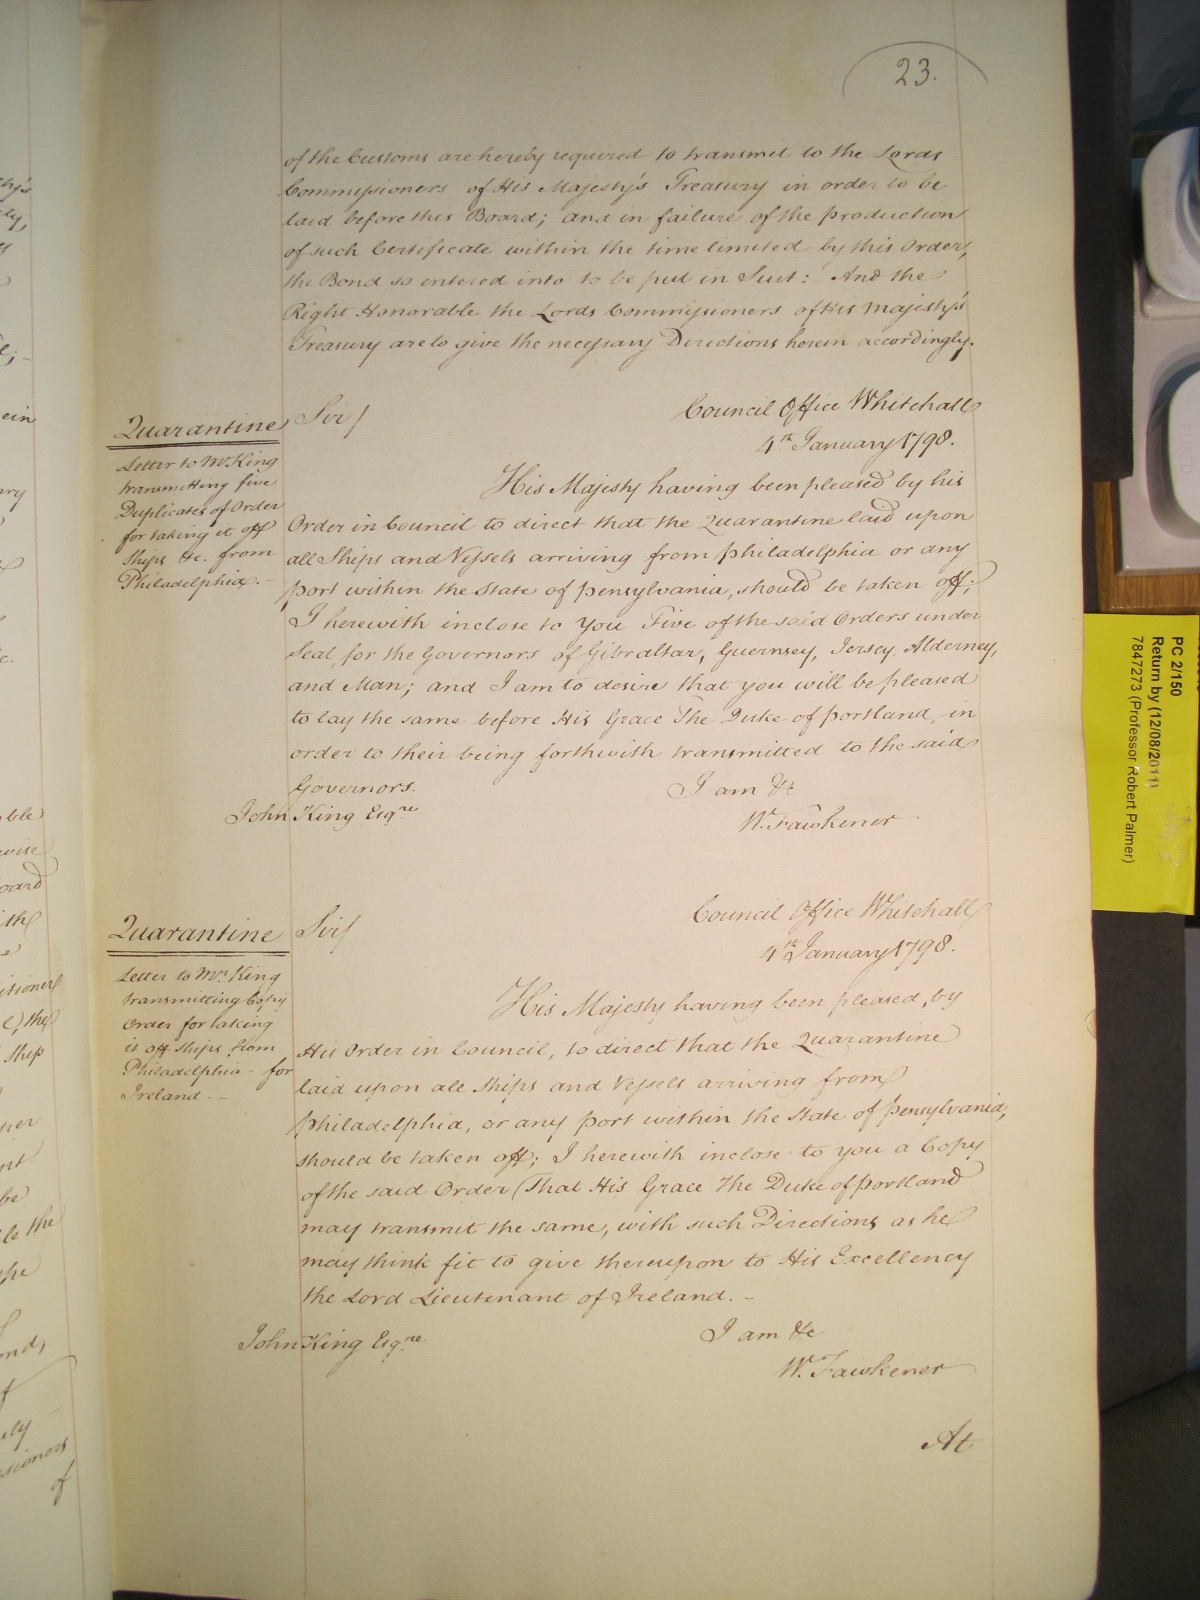 23.
of the Customs are hereby required to transmit to the Lords
Commissioners of His Majesty's Treasury in order to be
laid before this Board; and in failure of the production
of such Certificate within the time limited by this Order,
the Bond so entered into to be put in Suit: And the
Right Honorable the Lords Commissioners of His Majesty's
Treasury are to give the necessary Directions herein accordingly.
Quarantine
Letter to Mr. King
transmitting five
Duplicates of Order
for taking it off
Ships &c. from
Philadelphia. -
Sir/
Council Office Whitehall
4th January 1798.
His Majesty having been pleased by his
Order in Council to direct that the Quarantine laid upon
all Ships and Vessels arriving from Philadelphia or any
port within the State of Pensylvania, should be taken off;
I herewith inclose to You Five of the said Orders under
Seal, for the Governors of Gibraltar, Guernsey, Jersey, Alderney,
and Man; and I am to desire that you will be pleased
to lay the same before His Grace The Duke of Portland, in
order to their being forthwith transmitted to the said
Governors.
I am &c
John King Esqre
W. Fawkener
Quarantine
Letter to Mr. King
transmitting Copy
Order for taking
is off Ships from
Philadelphia - for
Ireland. -
Sir/
Council Office Whitehall
4th January 1798.
His Majesty having been pleased, by
His Order in Council, to direct that the Quarantine
laid upon all Ships and Vessels arriving from
Philadelphia, or any Port within the State of Pensylvania,
should be taken off; I herewith inclose to you a Copy
of the said Order (That His Grace The Duke of Portland
may transmit the same, with such Directions as he
may think fit to give thereupon to His Excellency
the Lord Lieutenant of Ireland. -
I am &c
John King Esqre
W. Fawkener
At
PC 2/150
Return by (12/08/2011)
7847273 (Professor Robert Palmer)